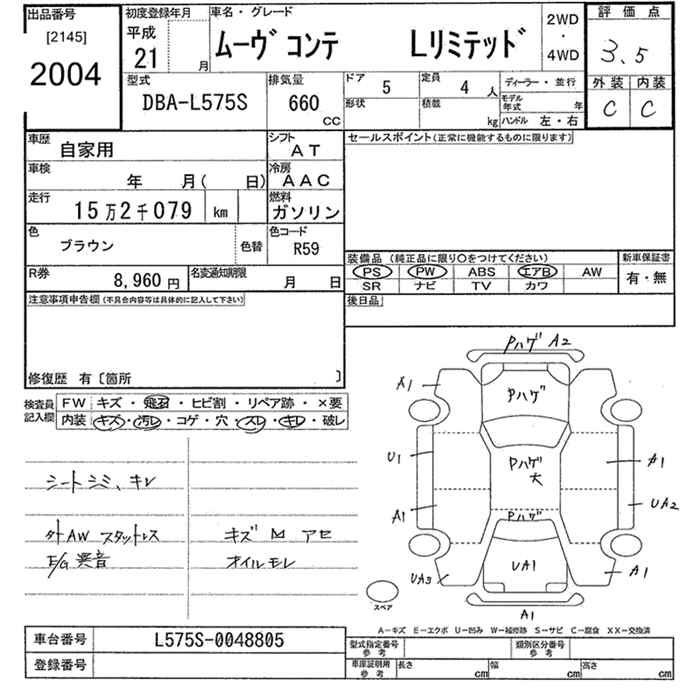 出品番号 初度登録年月 車名・グレード 評価点
[2145] 平成 2WD
2004 21 月 ムーヴ コンテ Lリミテッド ・ 3.5
4WD
型式 排気量 ドア 5 定員 4 人 ディーラー・並行 外装 内装
DBA-L575S 660 cc 形状 積載 kg モデル年式 年 C C
ハンドル 左・右
車歴 自家用 シフト AT セールスポイント(正常に機能するものに限ります)
車検 年 月( 日) 冷房 AAC
走行 15万2千079 km 燃料 ガソリン
色 ブラウン 色替 色コード R59 装備品 (純正品に限り○をつけてください) 新車保証書
PS PW ABS エアB AW 有・無
R券 8,960円 名変通知期限 月 日 SR ナビ TV カワ
注意事項申告欄(不具合内容等は具体的に記入して下さい) 後日品
修復歴 有〔箇所 〕
検査員記入欄 FW キズ・飛石・ヒビ割・リペア跡・×要
内装 キズ・汚レ・コゲ・穴・スレ・キレ・破レ
シート シミ、キレ
外AW スタットレス キズ M アセ
E/G 異音 オイルモレ
Pハゲ A2
A1 Pハゲ
U1 Pハゲ 大 A1
A1 Pハゲ UA2
UA3 UA1 A1
スペア A1
A−キズ E−エクボ U−凹み W−補修跡 S−サビ C−腐食 XX−交換済
車台番号 L575S-0048805 型式指定番号 参考 類別区分番号 参考
登録番号 車庫証明用 参考 長さ cm 幅 cm 高さ cm